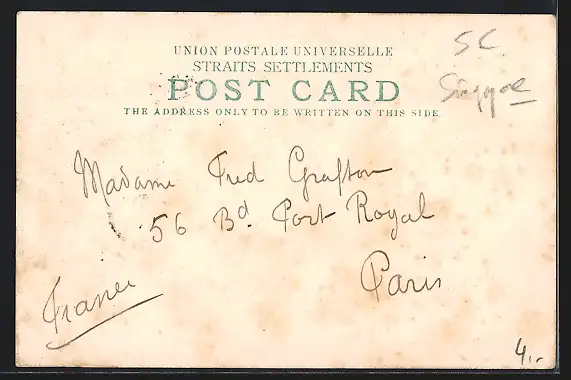 UNION POSTALE UNIVERSELLE
STRAITS SETTLEMENTS
POST CARD
THE ADDRESS ONLY TO BE WRITTEN ON THIS SIDE.
5C
Singapore
Madame Fred Grafton
56 Bd. Port Royal
Paris
France
4.-